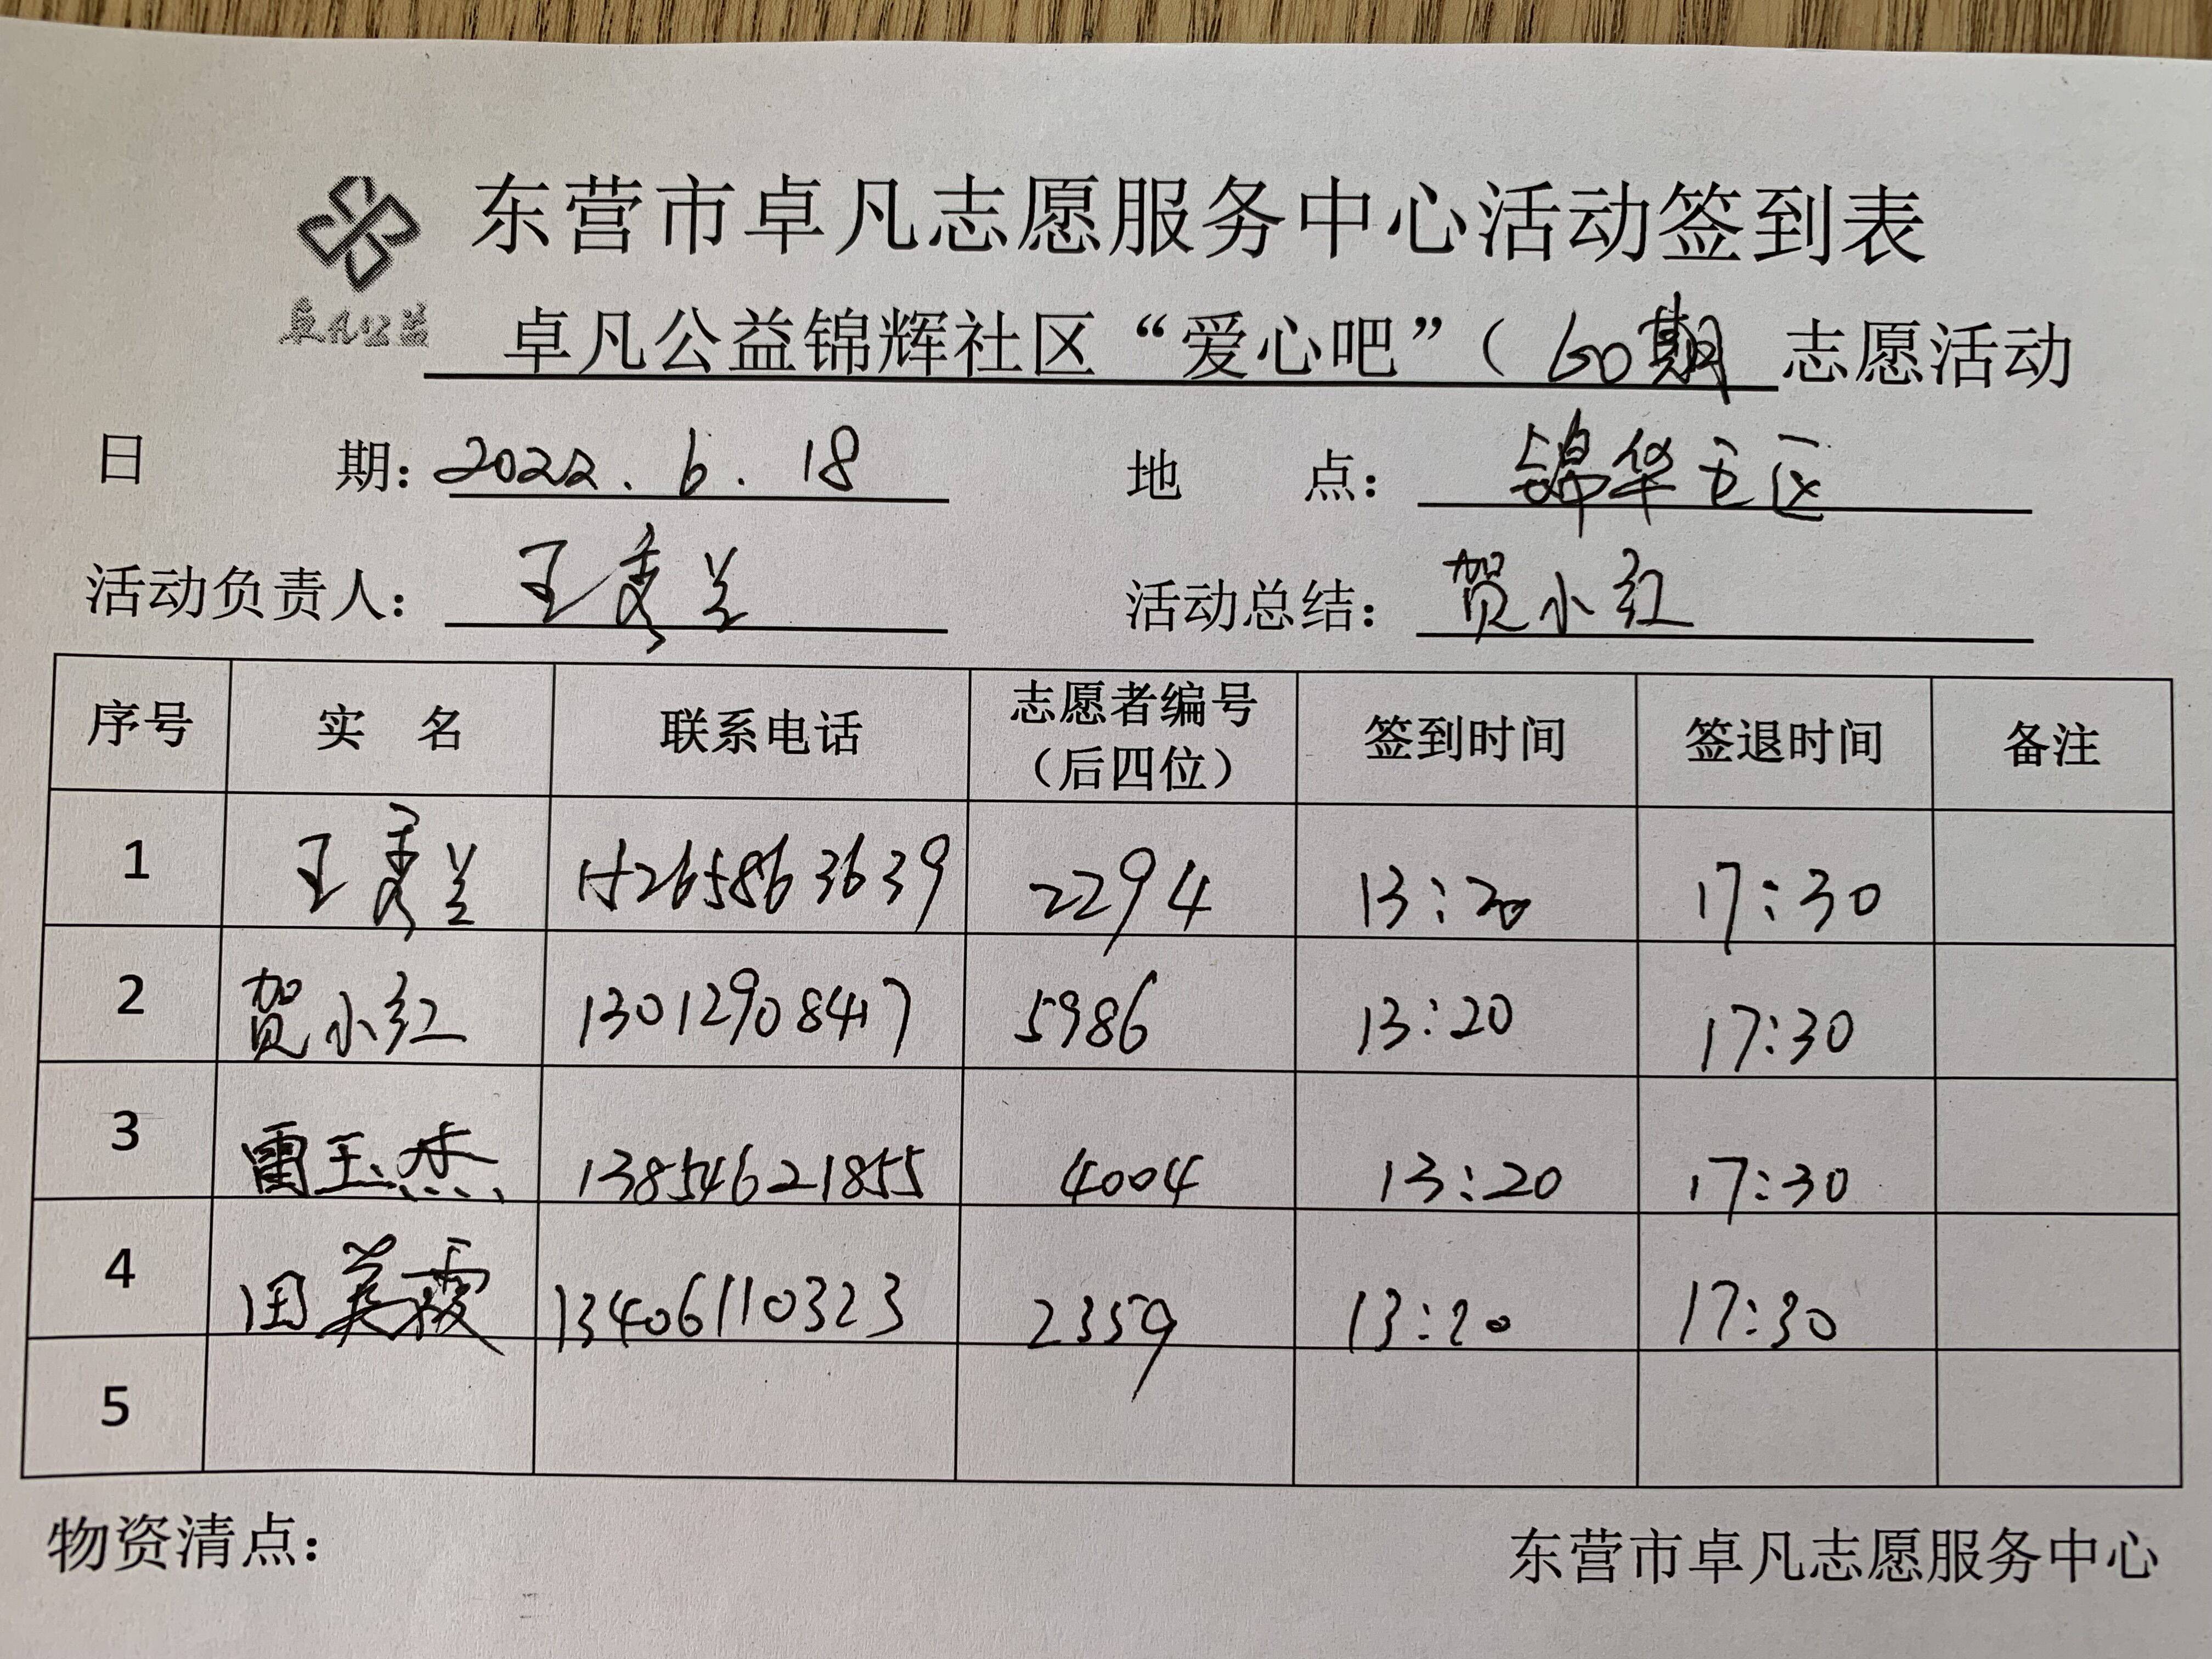 东营市卓凡志愿服务中心活动签到表
卓凡公益
卓凡公益锦辉社区“爱心吧”（60期 志愿活动
日 期：2022.6.18 地 点：锦华五区
活动负责人：王秀兰 活动总结：贺小红
序号 实 名 联系电话 志愿者编号（后四位） 签到时间 签退时间 备注
1 王秀兰 15265863639 2294 13:20 17:30
2 贺小红 13012908417 5986 13:20 17:30
3 雷玉杰 13854621855 4004 13:20 17:30
4 田英霞 13406110323 2359 13:20 17:30
5
物资清点： 东营市卓凡志愿服务中心